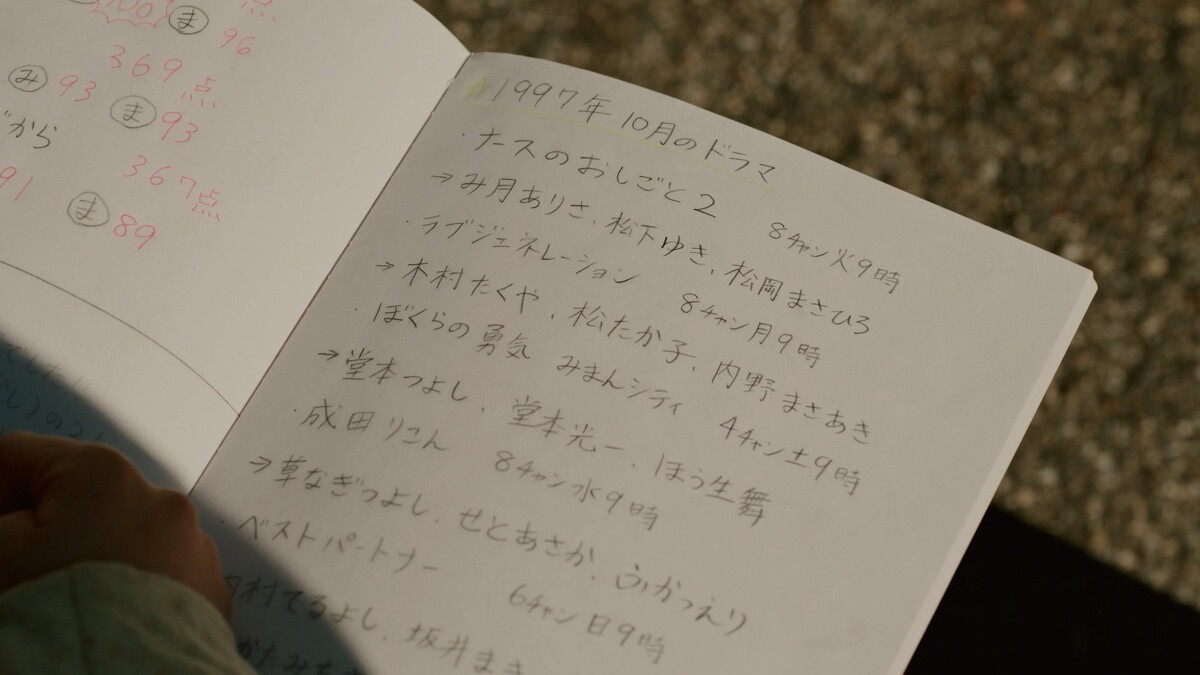 100 ま 96
369点
み 93 ま 93
から
367点
91 ま 89
1997年10月のドラマ
・ナースのおしごと2 8チャン火9時
→み月ありさ、松下ゆき、松岡まさひろ
・ラブジェネレーション 8チャン月9時
→木村たくや、松たか子、内野まさあき
・ぼくらの勇気 みまんシティ 4チャン土9時
→堂本つよし、堂本光一、ほう生舞
・成田りこん 8チャン水9時
→草なぎつよし、せとあさか、ふかつえり
・ベストパートナー 6チャン日9時
村てるよし、坂井まき